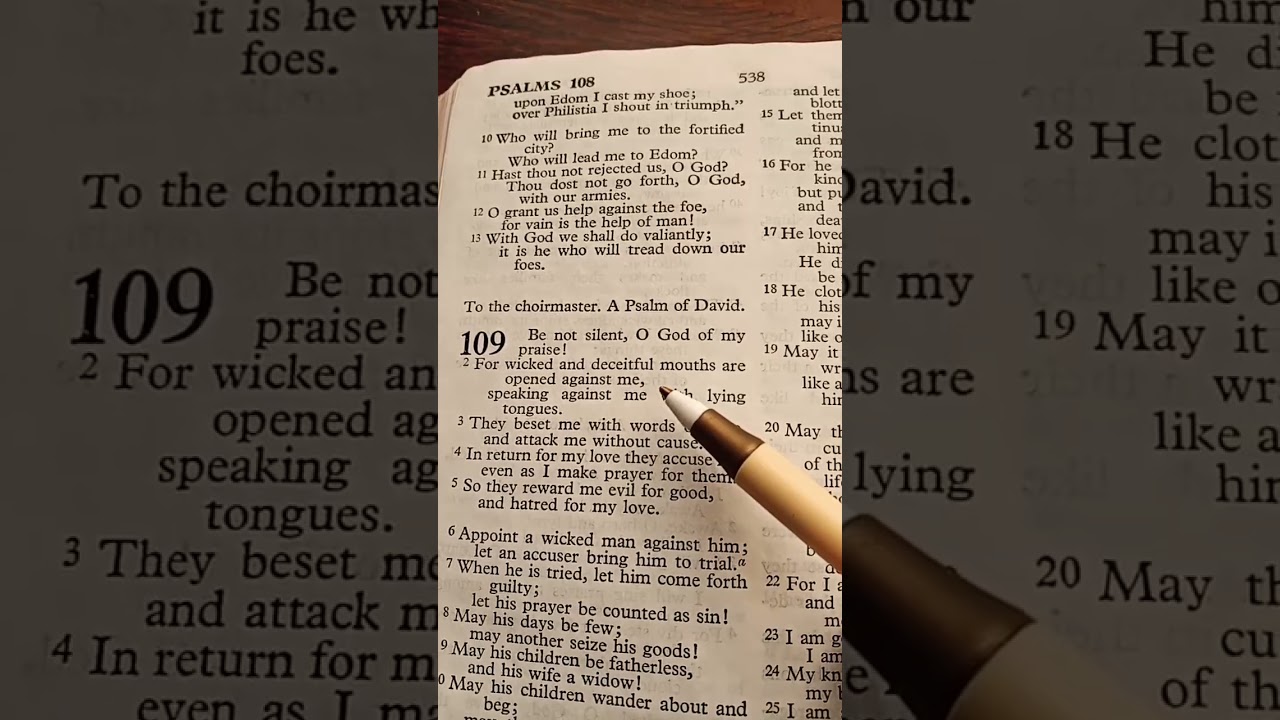 it is he wh
foes.
To the choirmas
109 Be not
praise!
2 For wicked an
opened ag
speaking ag
tongues.
3 They beset me
and attack m
4 In return for m
even as I ma
PSALMS 108
538
upon Edom I cast my shoe;
over Philistia I shout in triumph."
10 Who will bring me to the fortified
city?
Who will lead me to Edom?
11 Hast thou not rejected us, O God?
Thou dost not go forth, O God,
with our armies.
12 O grant us help against the foe,
for vain is the help of man!
13 With God we shall do valiantly;
it is he who will tread down our
foes.
To the choirmaster. A Psalm of David.
109 Be not silent, O God of my
praise!
2 For wicked and deceitful mouths are
opened against me,
speaking against me lying
tongues.
3 They beset me with words
and attack me without cause.
4 In return for my love they accuse
even as I make prayer for them.
5 So they reward me evil for good,
and hatred for my love.
6 Appoint a wicked man against him;
let an accuser bring him to trial.a
7 When he is tried, let him come forth
guilty;
let his prayer be counted as sin!
8 May his days be few;
may another seize his goods!
9 May his children be fatherless,
and his wife a widow!
0 May his children wander about and
beg;
and let
blott
15 Let them
tinu
and m
from
16 For he
kind
but pu
and t
dea
17 He loved
him
He di
be
18 He clot
his
may i
like o
19 May it
wr
like a
hin
20 May th
cu
of th
lif
22 For I a
and
m
23 I am g
I am
24 My kn
my b
25 I am
n our
David.
of my
ns are
lying
him
He di
be
18 He clot
his
may i
like o
19 May it
wr
like a
hin
20 May th
cu
of th